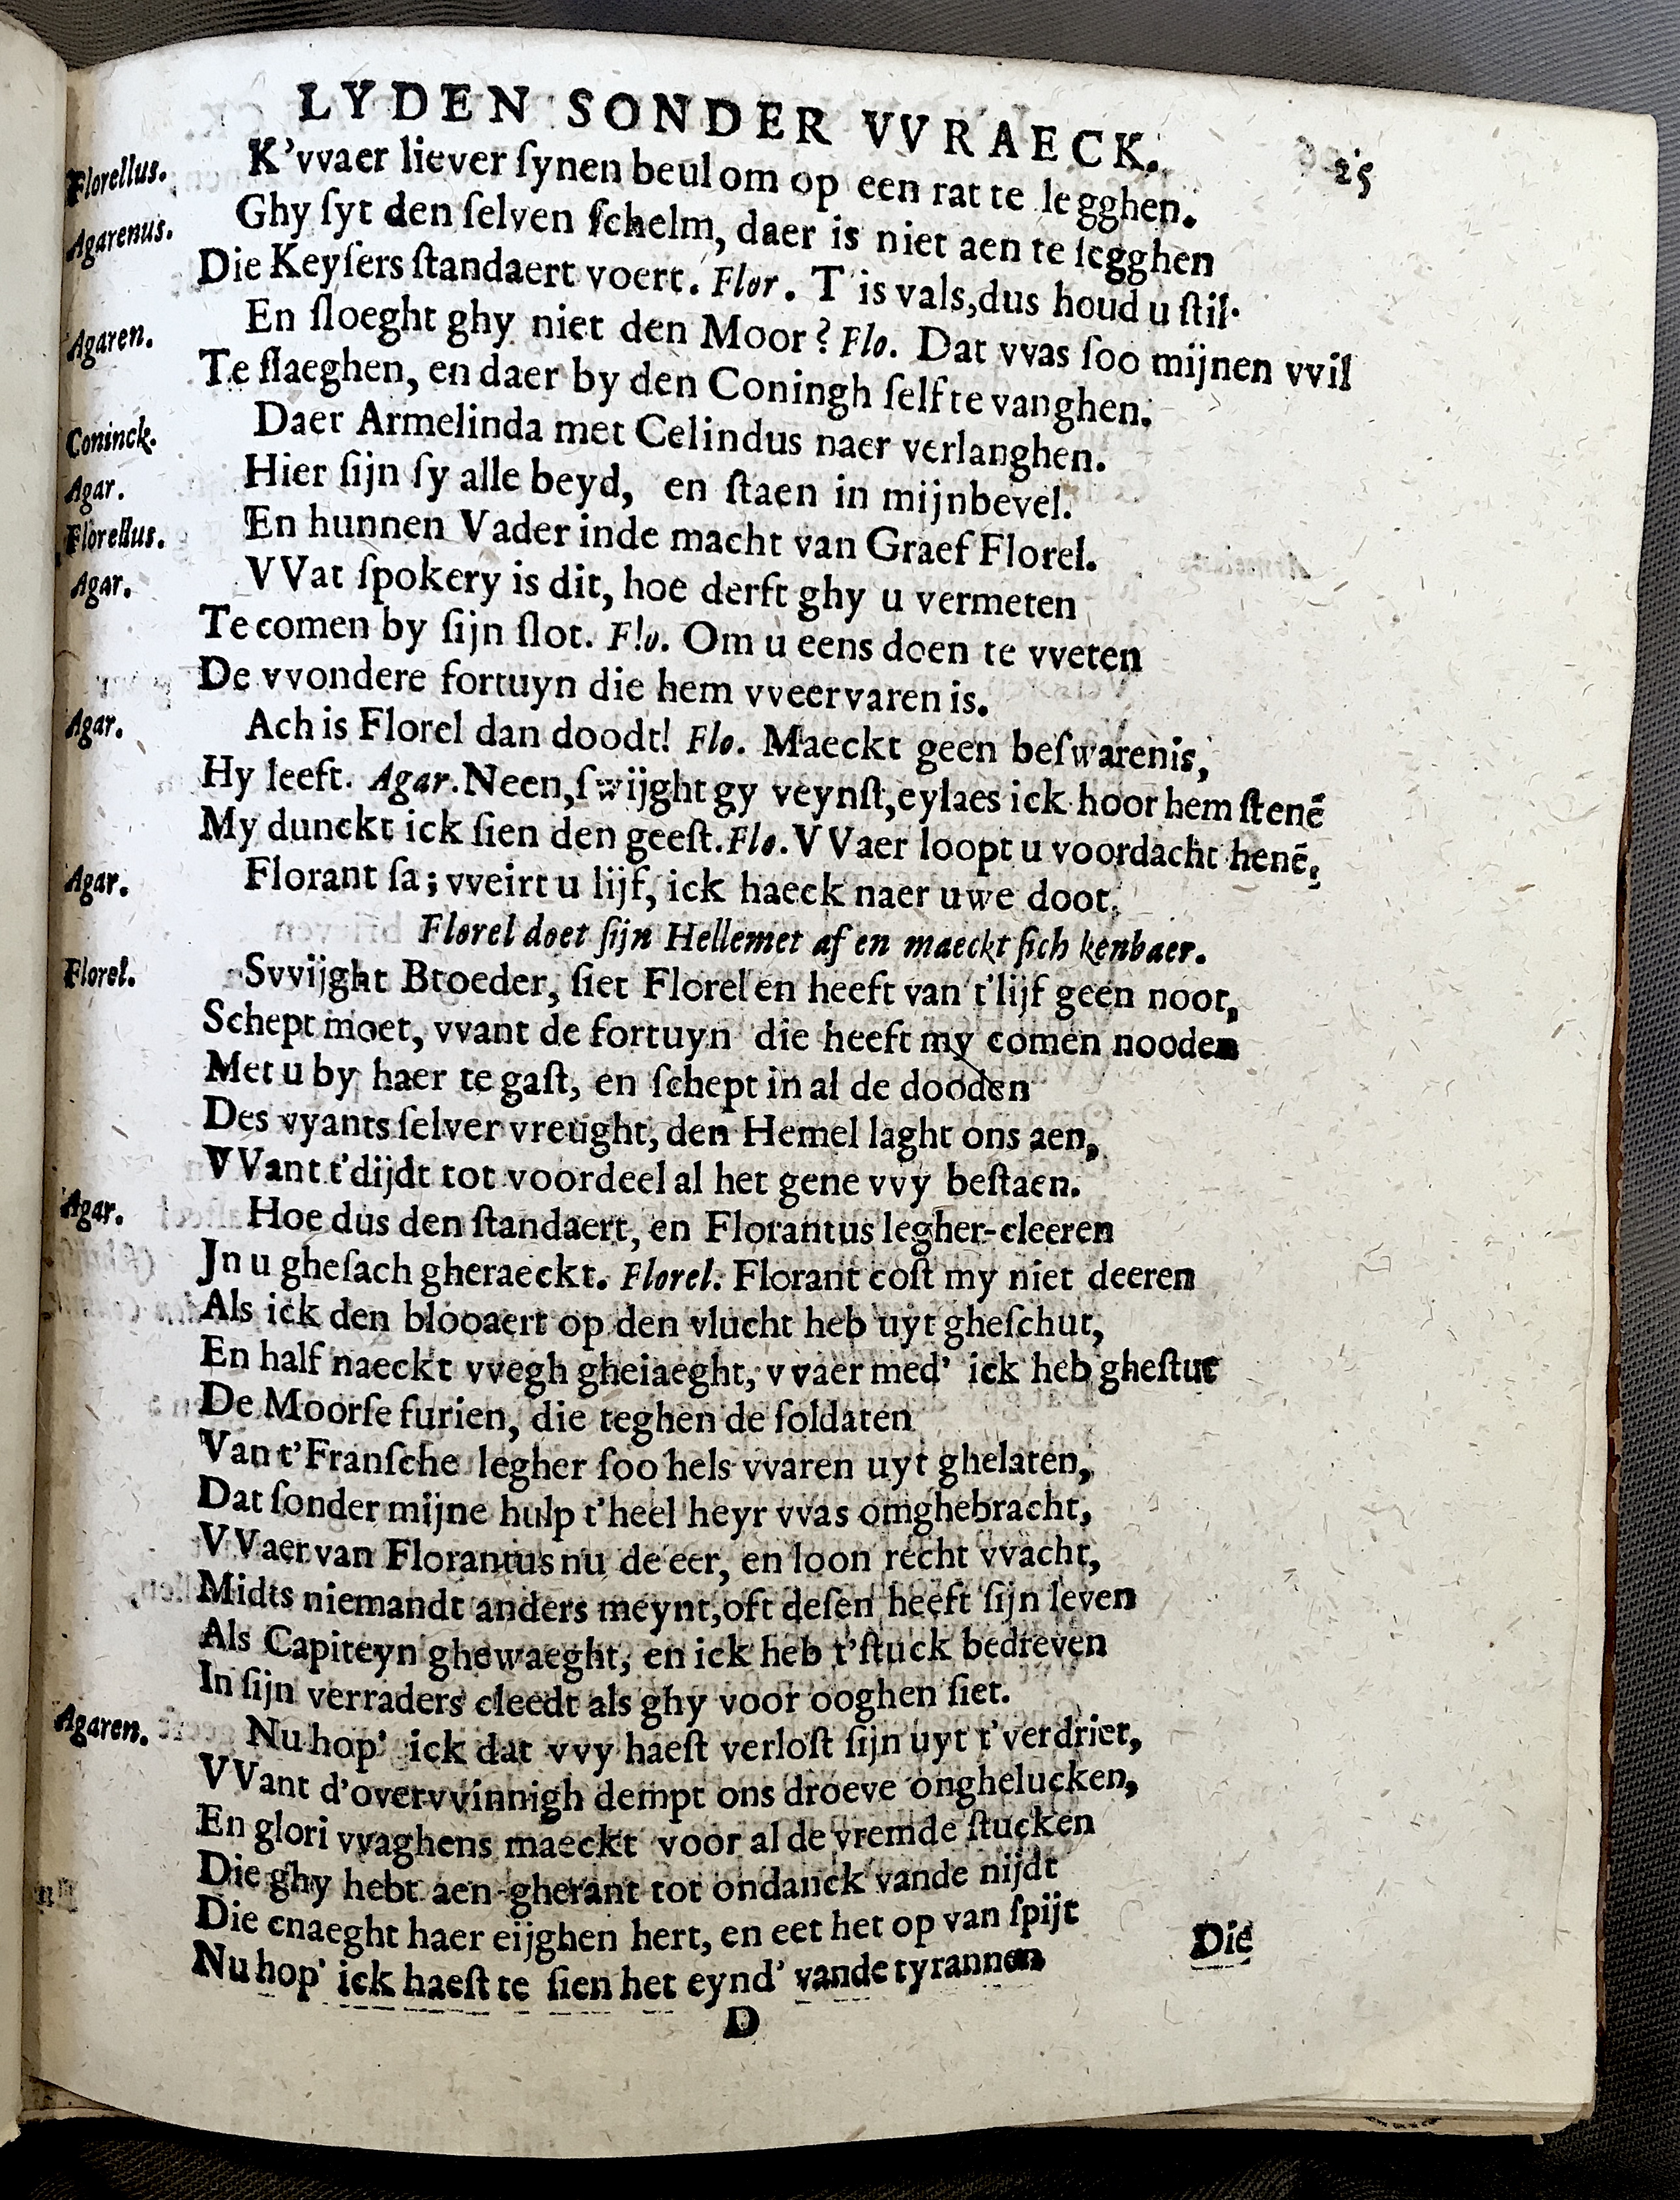 LYDEN SONDER VVRAECK. 25
Florellus. K'vvaer liever ſynen beul om op een rat te legghen.
Agarenus. Ghy ſyt den ſelven ſchelm, daer is niet aen te ſegghen
Die Keyſers ſtandaert voert. Flor. T'is vals,dus houd u ſtil.
Agaren. En ſloeght ghy niet den Moor? Flo. Dat vvas ſoo mijnen vvil
Te ſlaeghen, en daer by den Coningh ſelf te vanghen.
Coninck. Daer Armelinda met Celindus naer verlanghen.
Agar. Hier ſijn ſy alle beyd, en ſtaen in mijnbevel.
Florellus. En hunnen Vader inde macht van Graef Florel.
Agar. VVat ſpokery is dit, hoe derft ghy u vermeten
Te comen by ſijn ſlot. Flo. Om u eens doen te vveten
De vvondere fortuyn die hem vveervaren is.
Agar. Ach is Florel dan doodt! Flo. Maeckt geen beſwarenis,
Hy leeft. Agar. Neen,ſwijght gy veynſt,eylaes ick hoor hem ſtenē
My dunckt ick ſien den geeſt. Flo. VVaer loopt u voordacht henē,
Agar. Florant ſa; vveirt u lijf, ick haeck naer uwe doot.
Florel doet ſijn Hellemet af en maeckt ſich kenbaer.
Florel. Svvijght Broeder, ſiet Florel en heeft van t'lijf geen noot,
Schept moet, vvant de fortuyn die heeft my comen nooden
Met u by haer te gaſt, en ſchept in al de dooden
Des vyants ſelver vreught, den Hemel laght ons aen,
VVant t'dijdt tot voordeel al het gene vvy beſtaen.
Agar. Hoe dus den ſtandaert, en Florantus legher-cleeren
Jn u gheſach gheraeckt. Florel. Florant coſt my niet deeren
Als ick den blooaert op den vlucht heb uyt gheſchut,
En half naeckt vvegh gheiaeght, vvaer med' ick heb gheſtut
De Moorſe furien, die teghen de ſoldaten
Van t'Franſche legher ſoo hels vvaren uyt ghelaten,
Dat ſonder mijne hulp t'heel heyr vvas omghebracht,
VVaer van Florantus nu de eer, en loon recht vvacht,
Midts niemandt anders meynt,oft deſen heeft ſijn leven
Als Capiteyn ghewaeght, en ick heb t'ſtuck bedreven
In ſijn verraders cleedt als ghy voor ooghen ſiet.
Agaren. Nu hop' ick dat vvy haeſt verloſt ſijn uyt t'verdriet,
VVant d'overvvinnigh dempt ons droeve onghelucken,
En glori vvaghens maeckt voor al de vremde ſtucken
Die ghy hebt aen-gherant tot ondanck vande nijdt
Die cnaeght haer eijghen hert, en eet het op van ſpijt
Nu hop' ick haeſt te ſien het eynd' vande tyrannen
Die
D